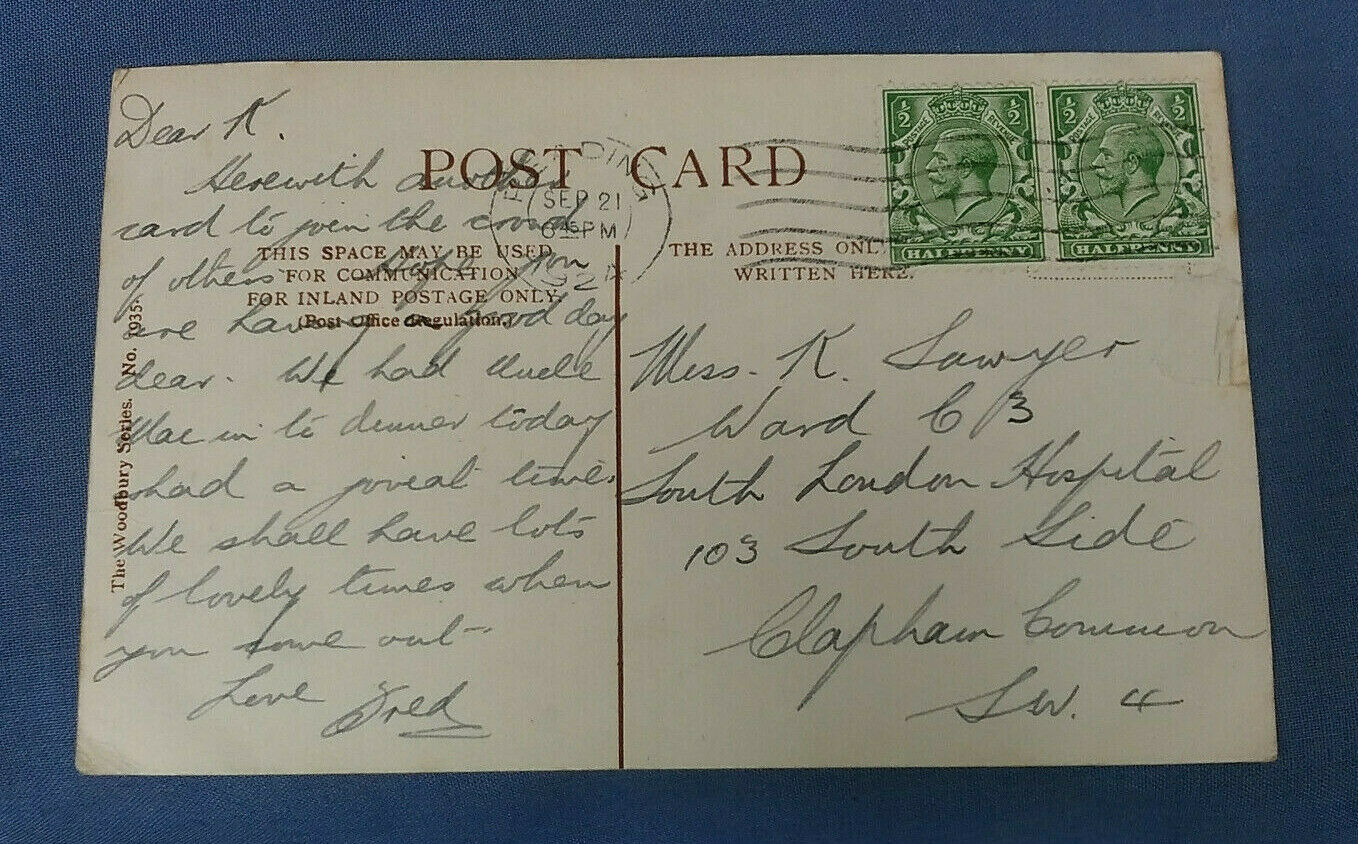 Dear K.
Herewith another
card to join the crowd
of others. Hope you
are having a good day
dear. We had Uncle
Mac in to dinner today
& had a jovial time.
We shall have lots
of lovely times when
you come out.
Love Fred
POST CARD
THIS SPACE MAY BE USED
FOR COMMUNICATION
FOR INLAND POSTAGE ONLY.
(Post Office Regulation.)
The Woodbury Series. No. 1935.
READING
SEP 21
PM
THE ADDRESS ONLY
WRITTEN HERE.
½ ½
POSTAGE REVENUE
HALFPENNY
½ ½
POSTAGE REVENUE
HALFPENNY
Miss. K. Sawyer
Ward C 3
South London Hospital
103 South Side
Clapham Common
S.W. 4